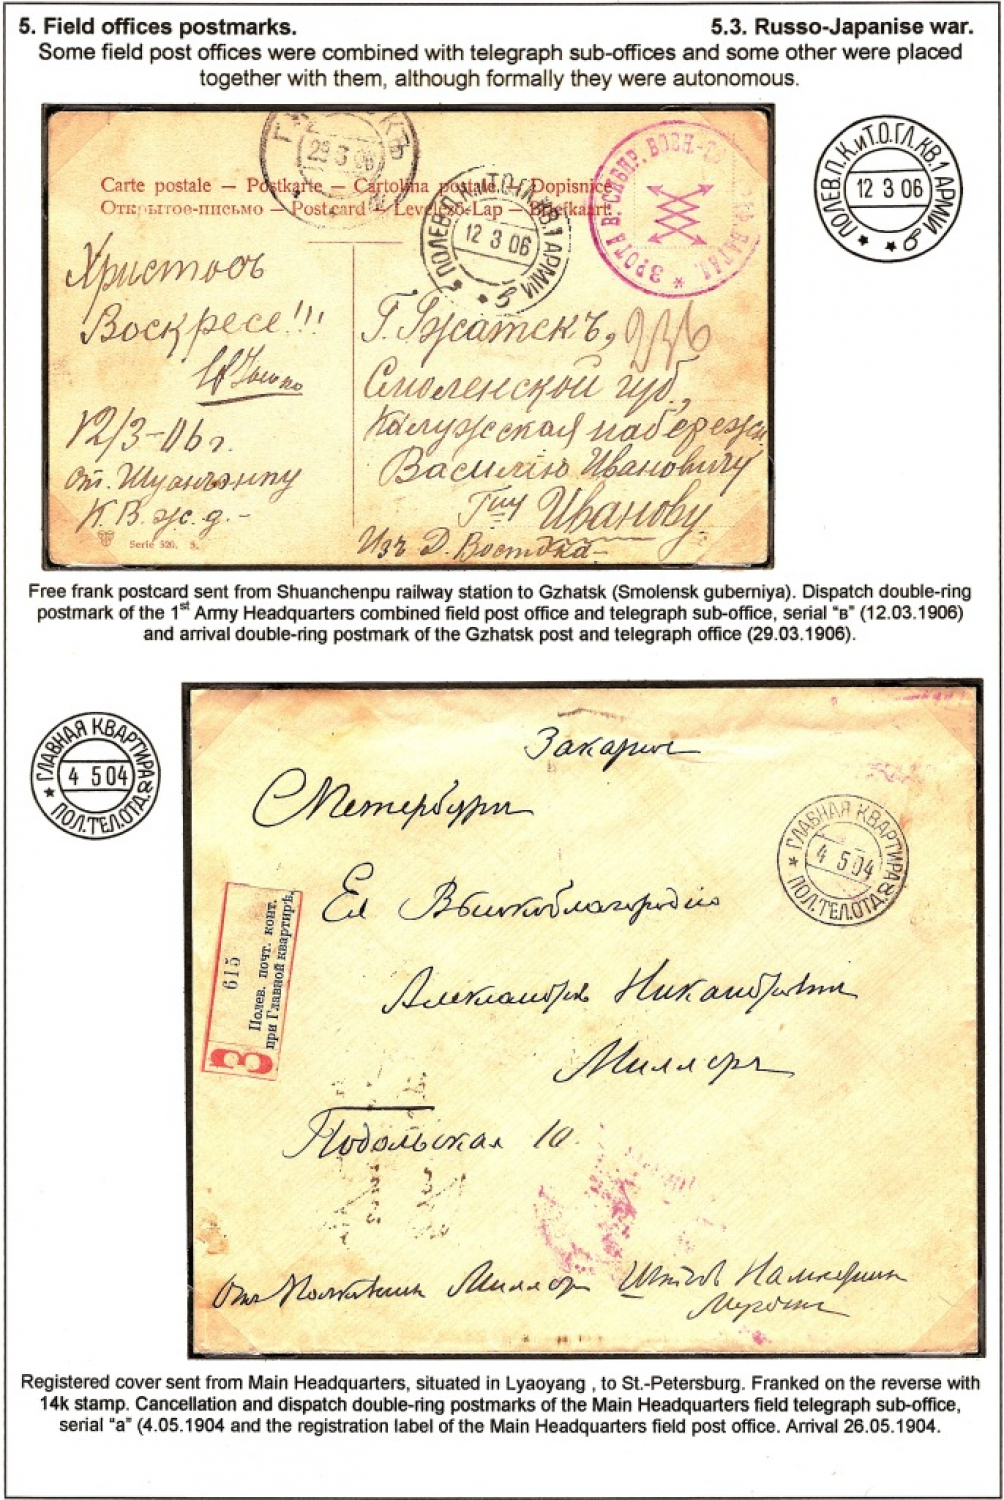 5. Field offices postmarks. 5.3. Russo-Japanise war.
Some field post offices were combined with telegraph sub-offices and some other were placed
together with them, although formally they were autonomous.
29 3 06
Carte postale — Postkarte — Cartolina postale — Dopisnice
Открытое-письмо — Post card — Levelező-Lap — Briefkaart
ПОЛЕВ.П.К.иТ.О.ГЛ.КВ.1 АРМІИ в
12 3 06
3 РОТА В. СИБИР. ВОЕН.-ТЕ БАТАЛ.
ПОЛЕВ.П.К.иТ.О.ГЛ.КВ.1 АРМІИ в
12 3 06
Христосъ
Воскресе!!!
12/3-06 г.
ст. Шуанчэнпу
К. В. ж. д. -
Serie 520. 5.
Г. Гжатскъ, 236
Смоленской губ.,
Калужская набережн
Василію Ивановичу
Гну Иванову
Изъ Д. Востока
Free frank postcard sent from Shuanchenpu railway station to Gzhatsk (Smolensk guberniya). Dispatch double-ring
postmark of the 1st Army Headquarters combined field post office and telegraph sub-office, serial “в” (12.03.1906)
and arrival double-ring postmark of the Gzhatsk post and telegraph office (29.03.1906).
ГЛАВНАЯ КВАРТИРА а
4 5 04
ПОЛ.ТЕЛ.ОТД.
Петербургъ
ГЛАВНАЯ КВАРТИРА а
4 5 04
ПОЛ.ТЕЛ.ОТД.
Ея Высокоблагородію
З
615
Полев. почт. конт.
при Главной квартирѣ.
Александрѣ Никандровнѣ
Миллеръ
Подольская 10
Миллеръ Штабъ
Registered cover sent from Main Headquarters, situated in Lyaoyang , to St.-Petersburg. Franked on the reverse with
14k stamp. Cancellation and dispatch double-ring postmarks of the Main Headquarters field telegraph sub-office,
serial “a” (4.05.1904 and the registration label of the Main Headquarters field post office. Arrival 26.05.1904.